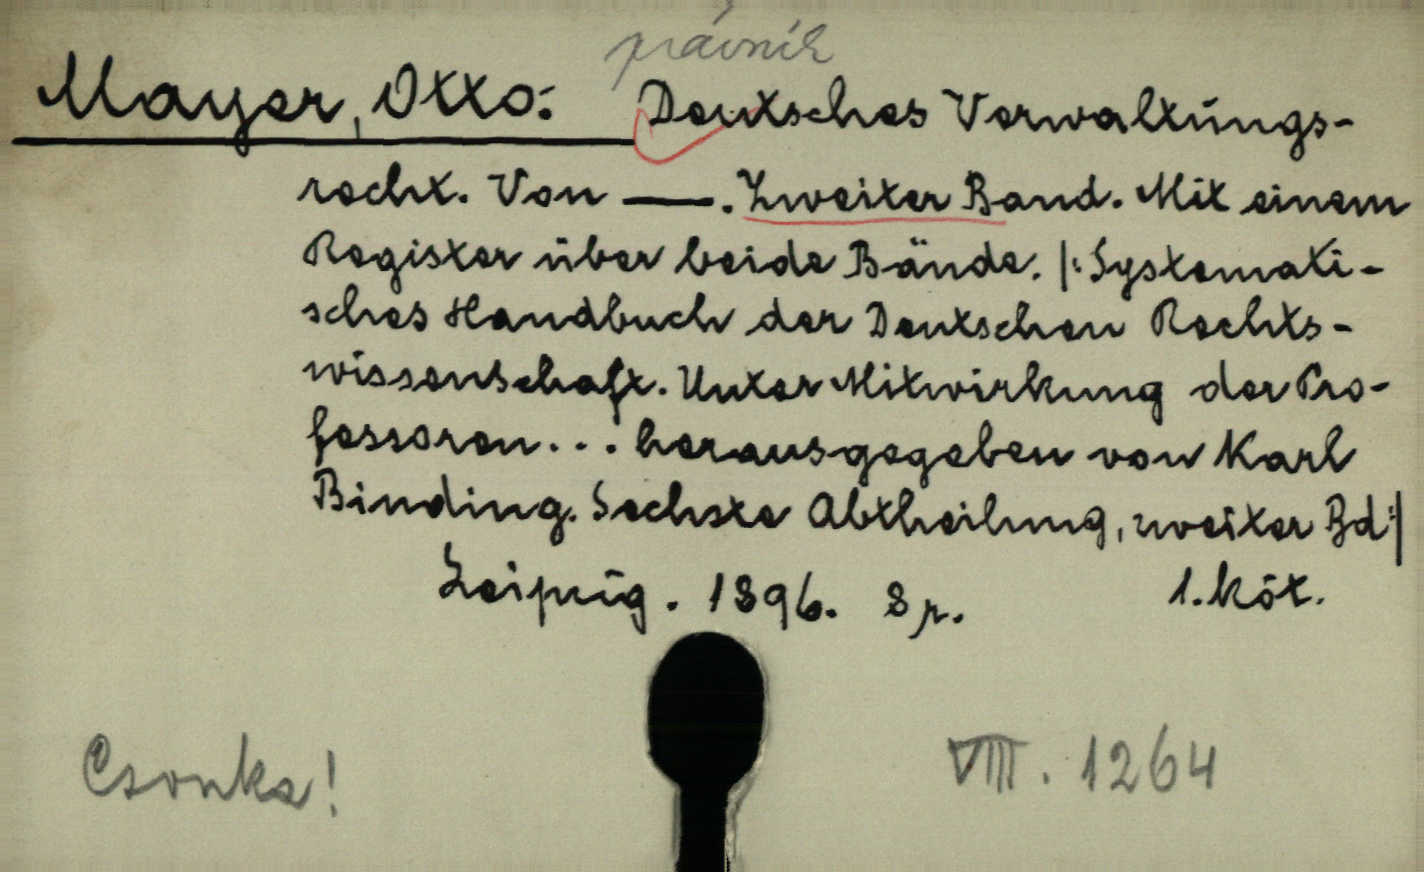 právnik
Mayer, Otto: Deutsches Verwaltungs-
recht. Von —. Zweiter Band. Mit einem
Register über beide Bände. /:Systemati-
sches Handbuch der Deutschen Rechts-
wissenschaft. Unter Mitwirkung der Pro-
fessoren... herausgegeben von Karl
Binding. Sechste Abtheilung, zweiter Bd:/
Leipzig. 1896. 8r. 1. köt.
Csonka! VIII. 1264